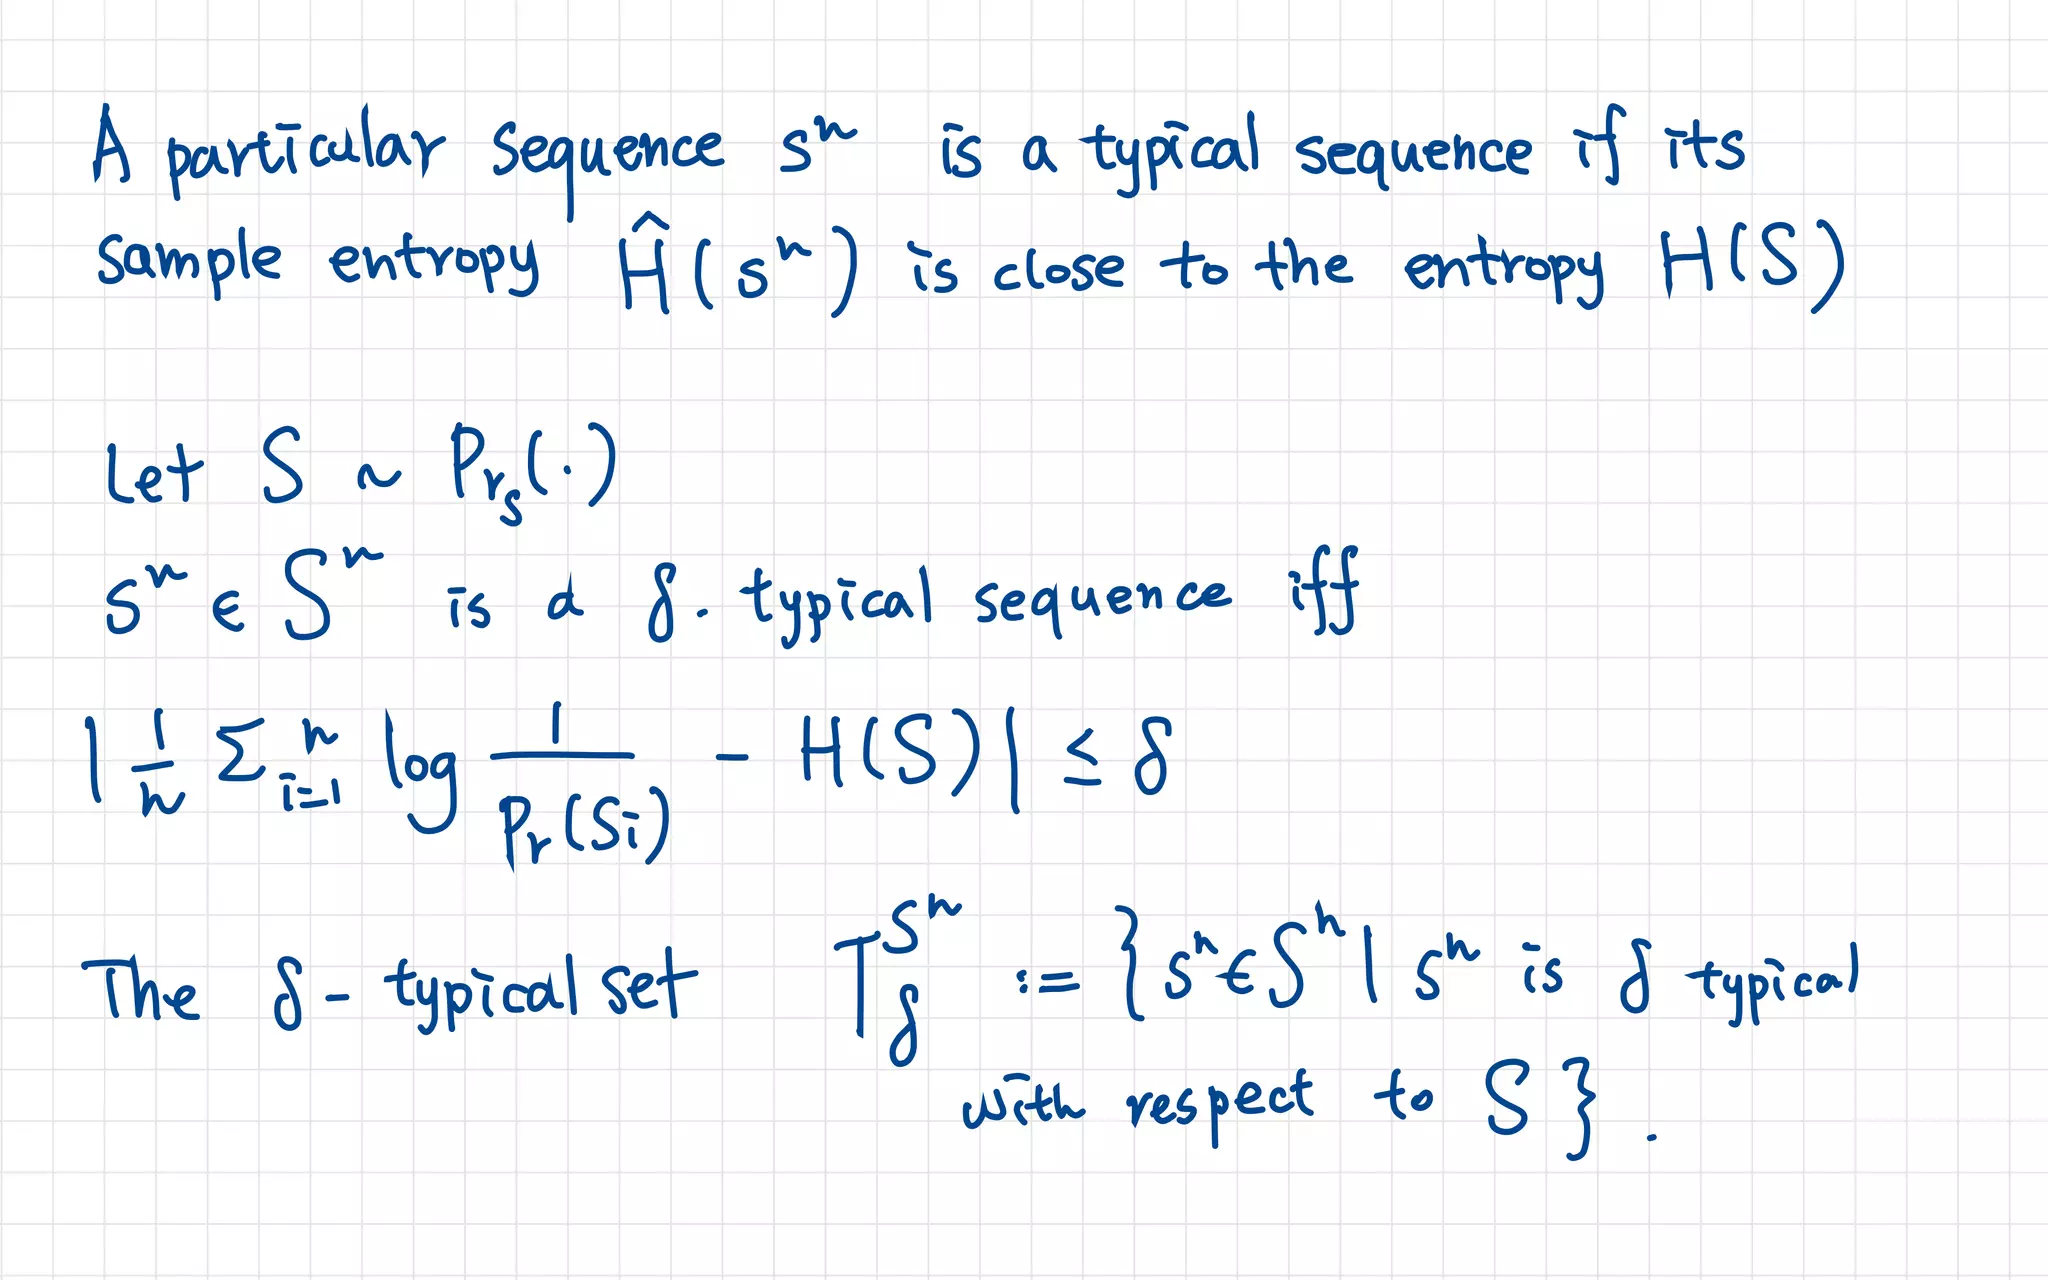 A particular sequence sⁿ is a typical sequence if its
sample entropy Ĥ(sⁿ) is close to the entropy H(S)
Let S ~ Pr_S(·)
sⁿ ∈ Sⁿ is a δ-typical sequence iff
|1/n Σ_{i=1}^n log 1/Pr(si) - H(S)| ≤ δ
The δ-typical set T_δ^{Sⁿ} := {sⁿ∈Sⁿ | sⁿ is δ typical
with respect to S}.